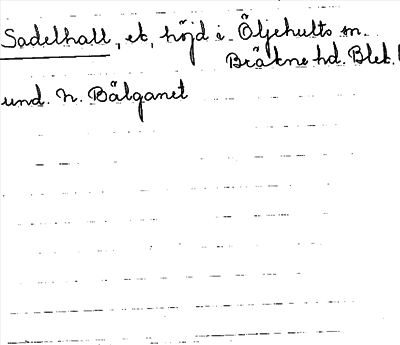 Sadelhall, et, höjd i Öljehults sn.
Bräkne hd. Blek.
und. N. Bälganet